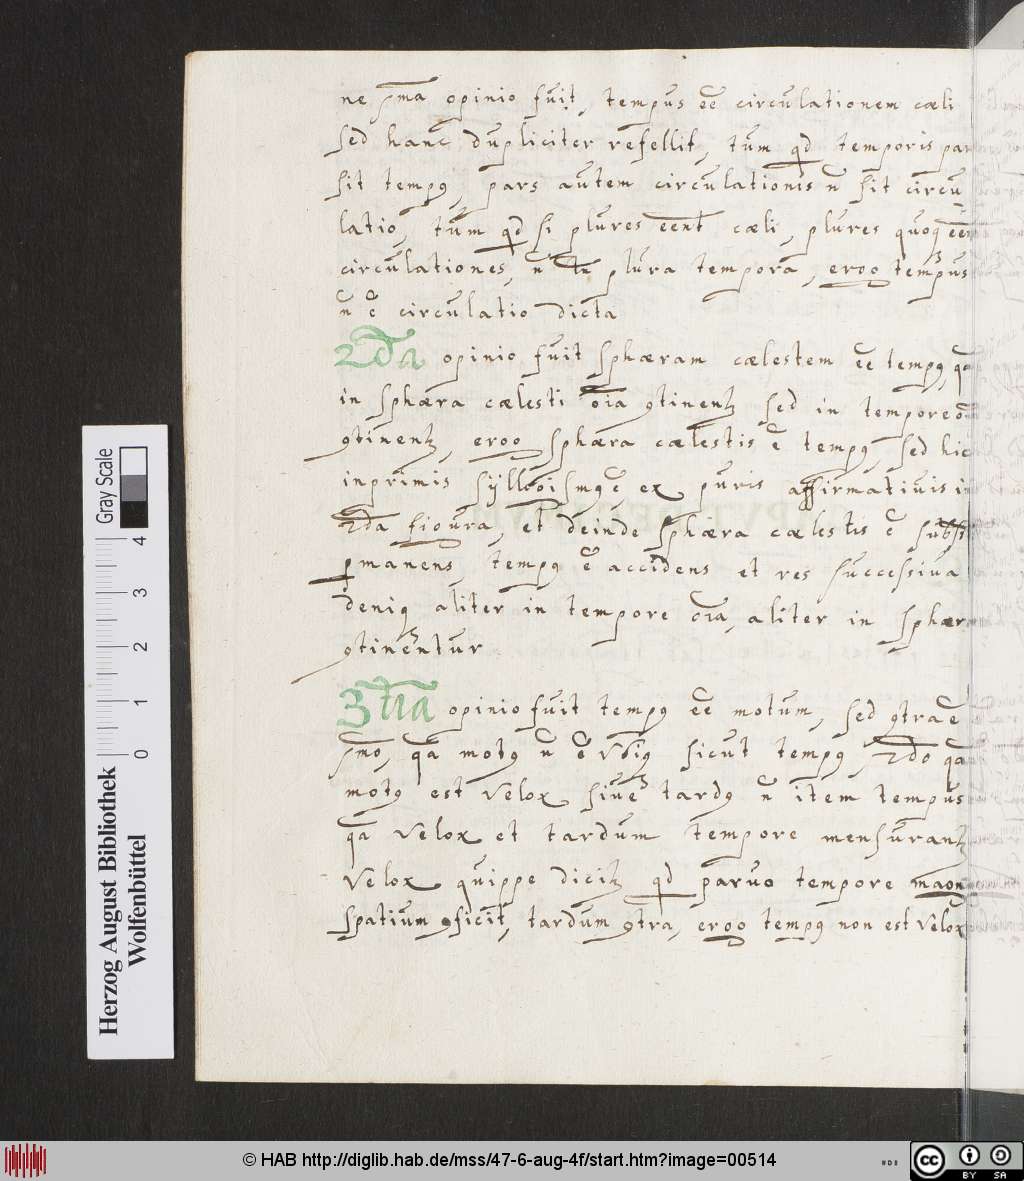 ne p̄ma opinio fuit, tempus ēē circulationem cæli
sed hanc dupliciter refellit, tum qd temporis par
sit tempꝰ, pars autem circulationis n̄ sit circu
latio, tum qd si plures eent cæli, plures quoqꝫ eēn
circulationes, n̄ tn̄ plura tempora, ergo tempus
n̄ ē circulatio dicta
2da opinio fuit sphæram cælestem ēē tempꝰ, qa
in sphæra cælesti oīa ꝯtinentꝛ sed in tempore o
ꝯtinentꝛ, ergo sphæra cælestis ē tempꝰ, sed hic
inprimis syllogismꝰ ē ex puris affirmatiuis in
2da figura, et deinde sphæra cælestis ē subst
ꝑmanens, tempꝰ ē accidens et res successiua
deniqꝫ aliter in tempore oīa, aliter in sphær
ꝯtinentur
3tia opinio fuit tempꝰ ēē motum, sed ꝯtra ē
p̄mo, qa motꝰ n̄ ē vbiqꝫ sicut tempꝰ, 2do qa
motꝰ est velox siue tardꝰ n̄ item tempus
qa velox et tardum tempore mensurantꝛ
velox quippe dicitꝛ qd paruo tempore magn
spatium ꝯficit, tardum ꝯtra, ergo tempꝰ non est velox
Herzog August Bibliothek
Wolfenbüttel
0 1 2 3 4
Gray Scale
© HAB http://diglib.hab.de/mss/47-6-aug-4f/start.htm?image=00514
cc BY SA